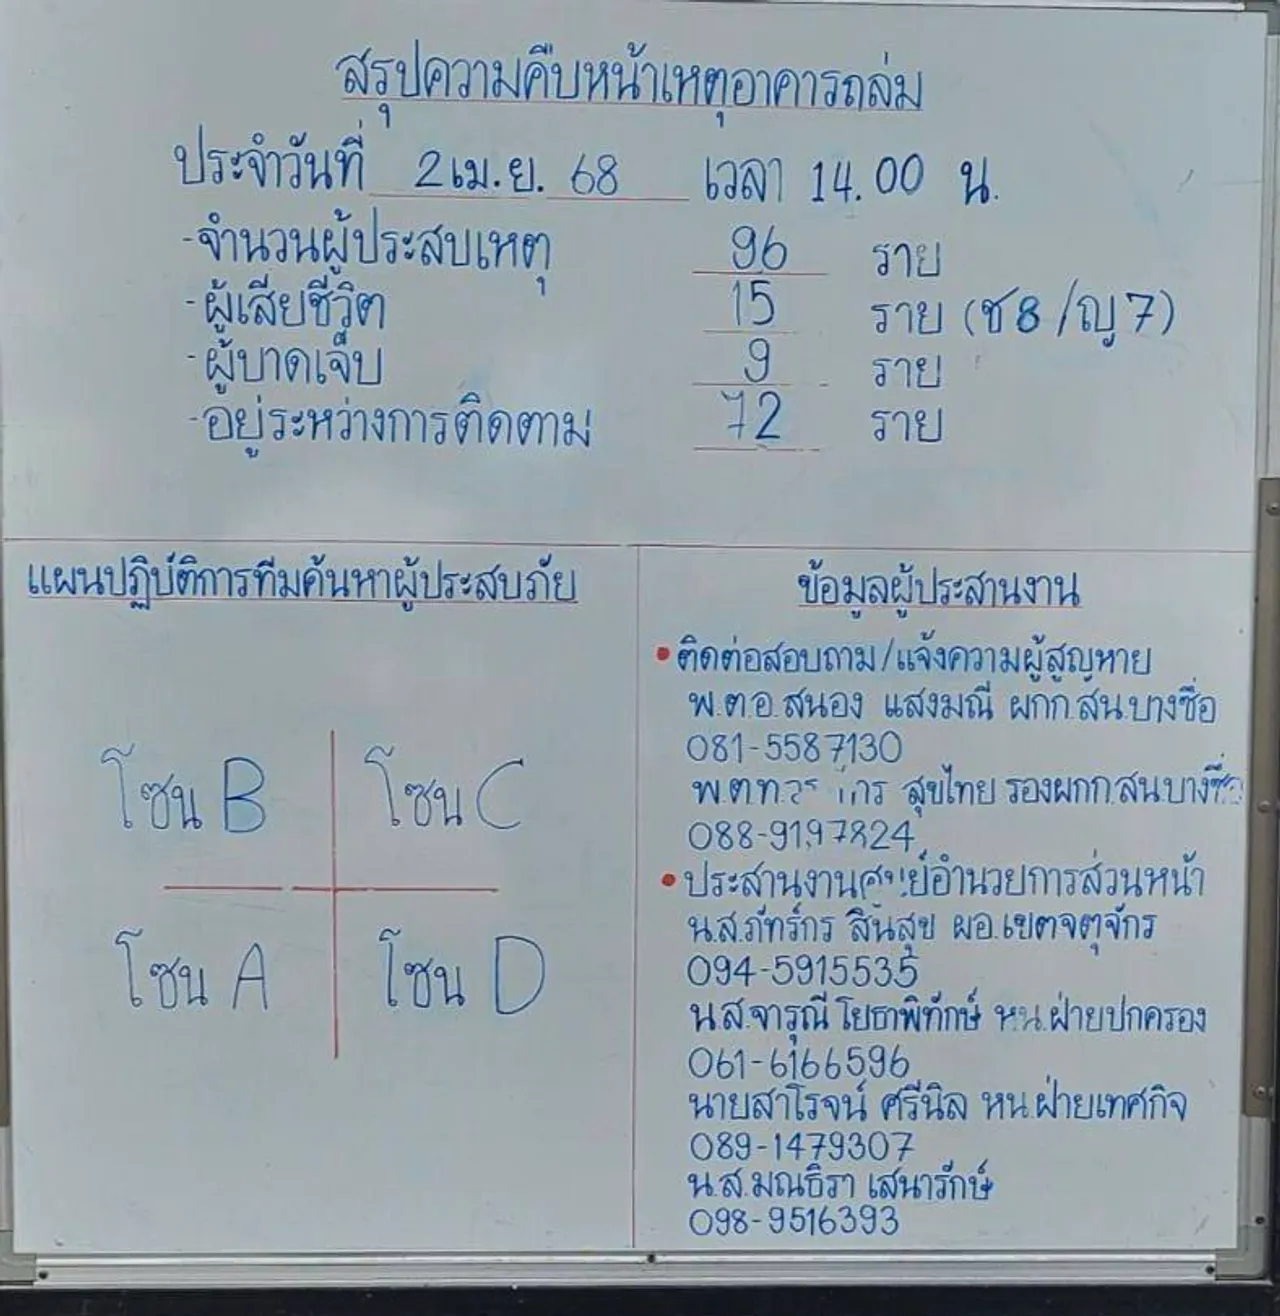 สรุปความคืบหน้าเหตุอาคารถล่ม
ประจำวันที่ 2 เม.ย. 68 เวลา 14.00 น.
- จำนวนผู้ประสบเหตุ 96 ราย
- ผู้เสียชีวิต 15 ราย (ช 8 / ญ 7)
- ผู้บาดเจ็บ 9 ราย
- อยู่ระหว่างการติดตาม 72 ราย
แผนปฏิบัติการทีมค้นหาผู้ประสบภัย
โซน B โซน C
โซน A โซน D
ข้อมูลผู้ประสานงาน
• ติดต่อสอบถาม/แจ้งความผู้สูญหาย
พ.ต.อ.สนอง แสงมณี ผกก.สน.บางซื่อ
081-5587130
พ.ต.ท. สุขไทย รองผกก.สน.บางซื่อ
088-9197824
• ประสานงานศูนย์อำนวยการส่วนหน้า
น.ส.ภัทร์กร สินสุข ผอ.เขตจตุจักร
094-5915535
น.ส.จารุณี โยธาพิทักษ์ หน.ฝ่ายปกครอง
061-6166596
นายสาโรจน์ ศรีนิล หน.ฝ่ายเทศกิจ
089-1479307
น.ส.มณธิรา เสนารักษ์
098-9516393